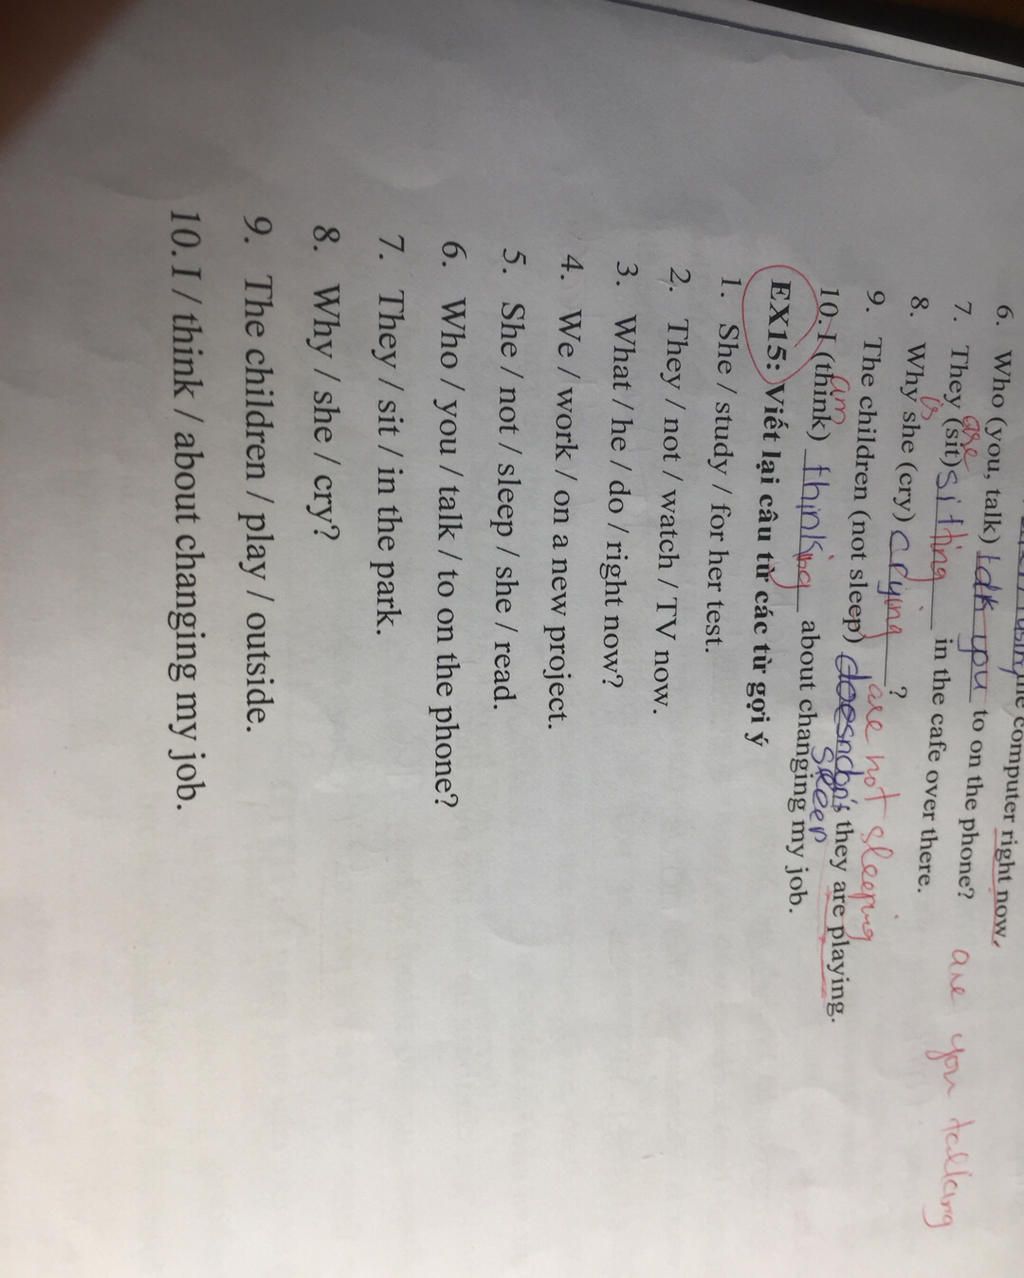 the computer right now.
6. Who (you, talk) talk you to on the phone? are you talking
7. They (sit) are sitting in the cafe over there.
8. Why she (cry) is crying ?
are not sleeping
9. The children (not sleep) sleep they are playing.
10. I (think) am thinking about changing my job.
EX15: Viết lại câu từ các từ gợi ý
1. She / study / for her test.
2. They / not / watch / TV now.
3. What / he / do / right now?
4. We / work / on a new project.
5. She / not / sleep / she / read.
6. Who / you / talk / to on the phone?
7. They / sit / in the park.
8. Why / she / cry?
9. The children / play / outside.
10. I / think / about changing my job.